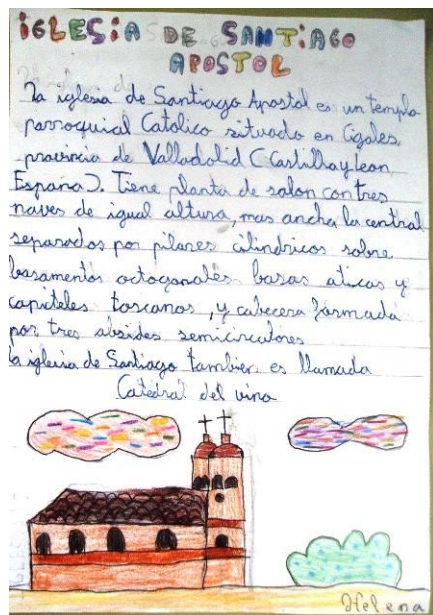 iGLESiA DE SANTiAGO
APOSTOL
La iglesia de Santiago Apostol es un templo
parroquial Catolico situado en Cigales,
provincia de Valladolid (Castilla y Leon,
España). Tiene planta de salon con tres
naves de igual altura, mas ancha la central
separados por pilares cilindricos sobre
basamentos octogonales basas aticas y
capiteles toscanos, y cabecera formada
por tres absides semicirculores
la iglesia de Santiago tambien es llamada
Catedral del vino
Helena